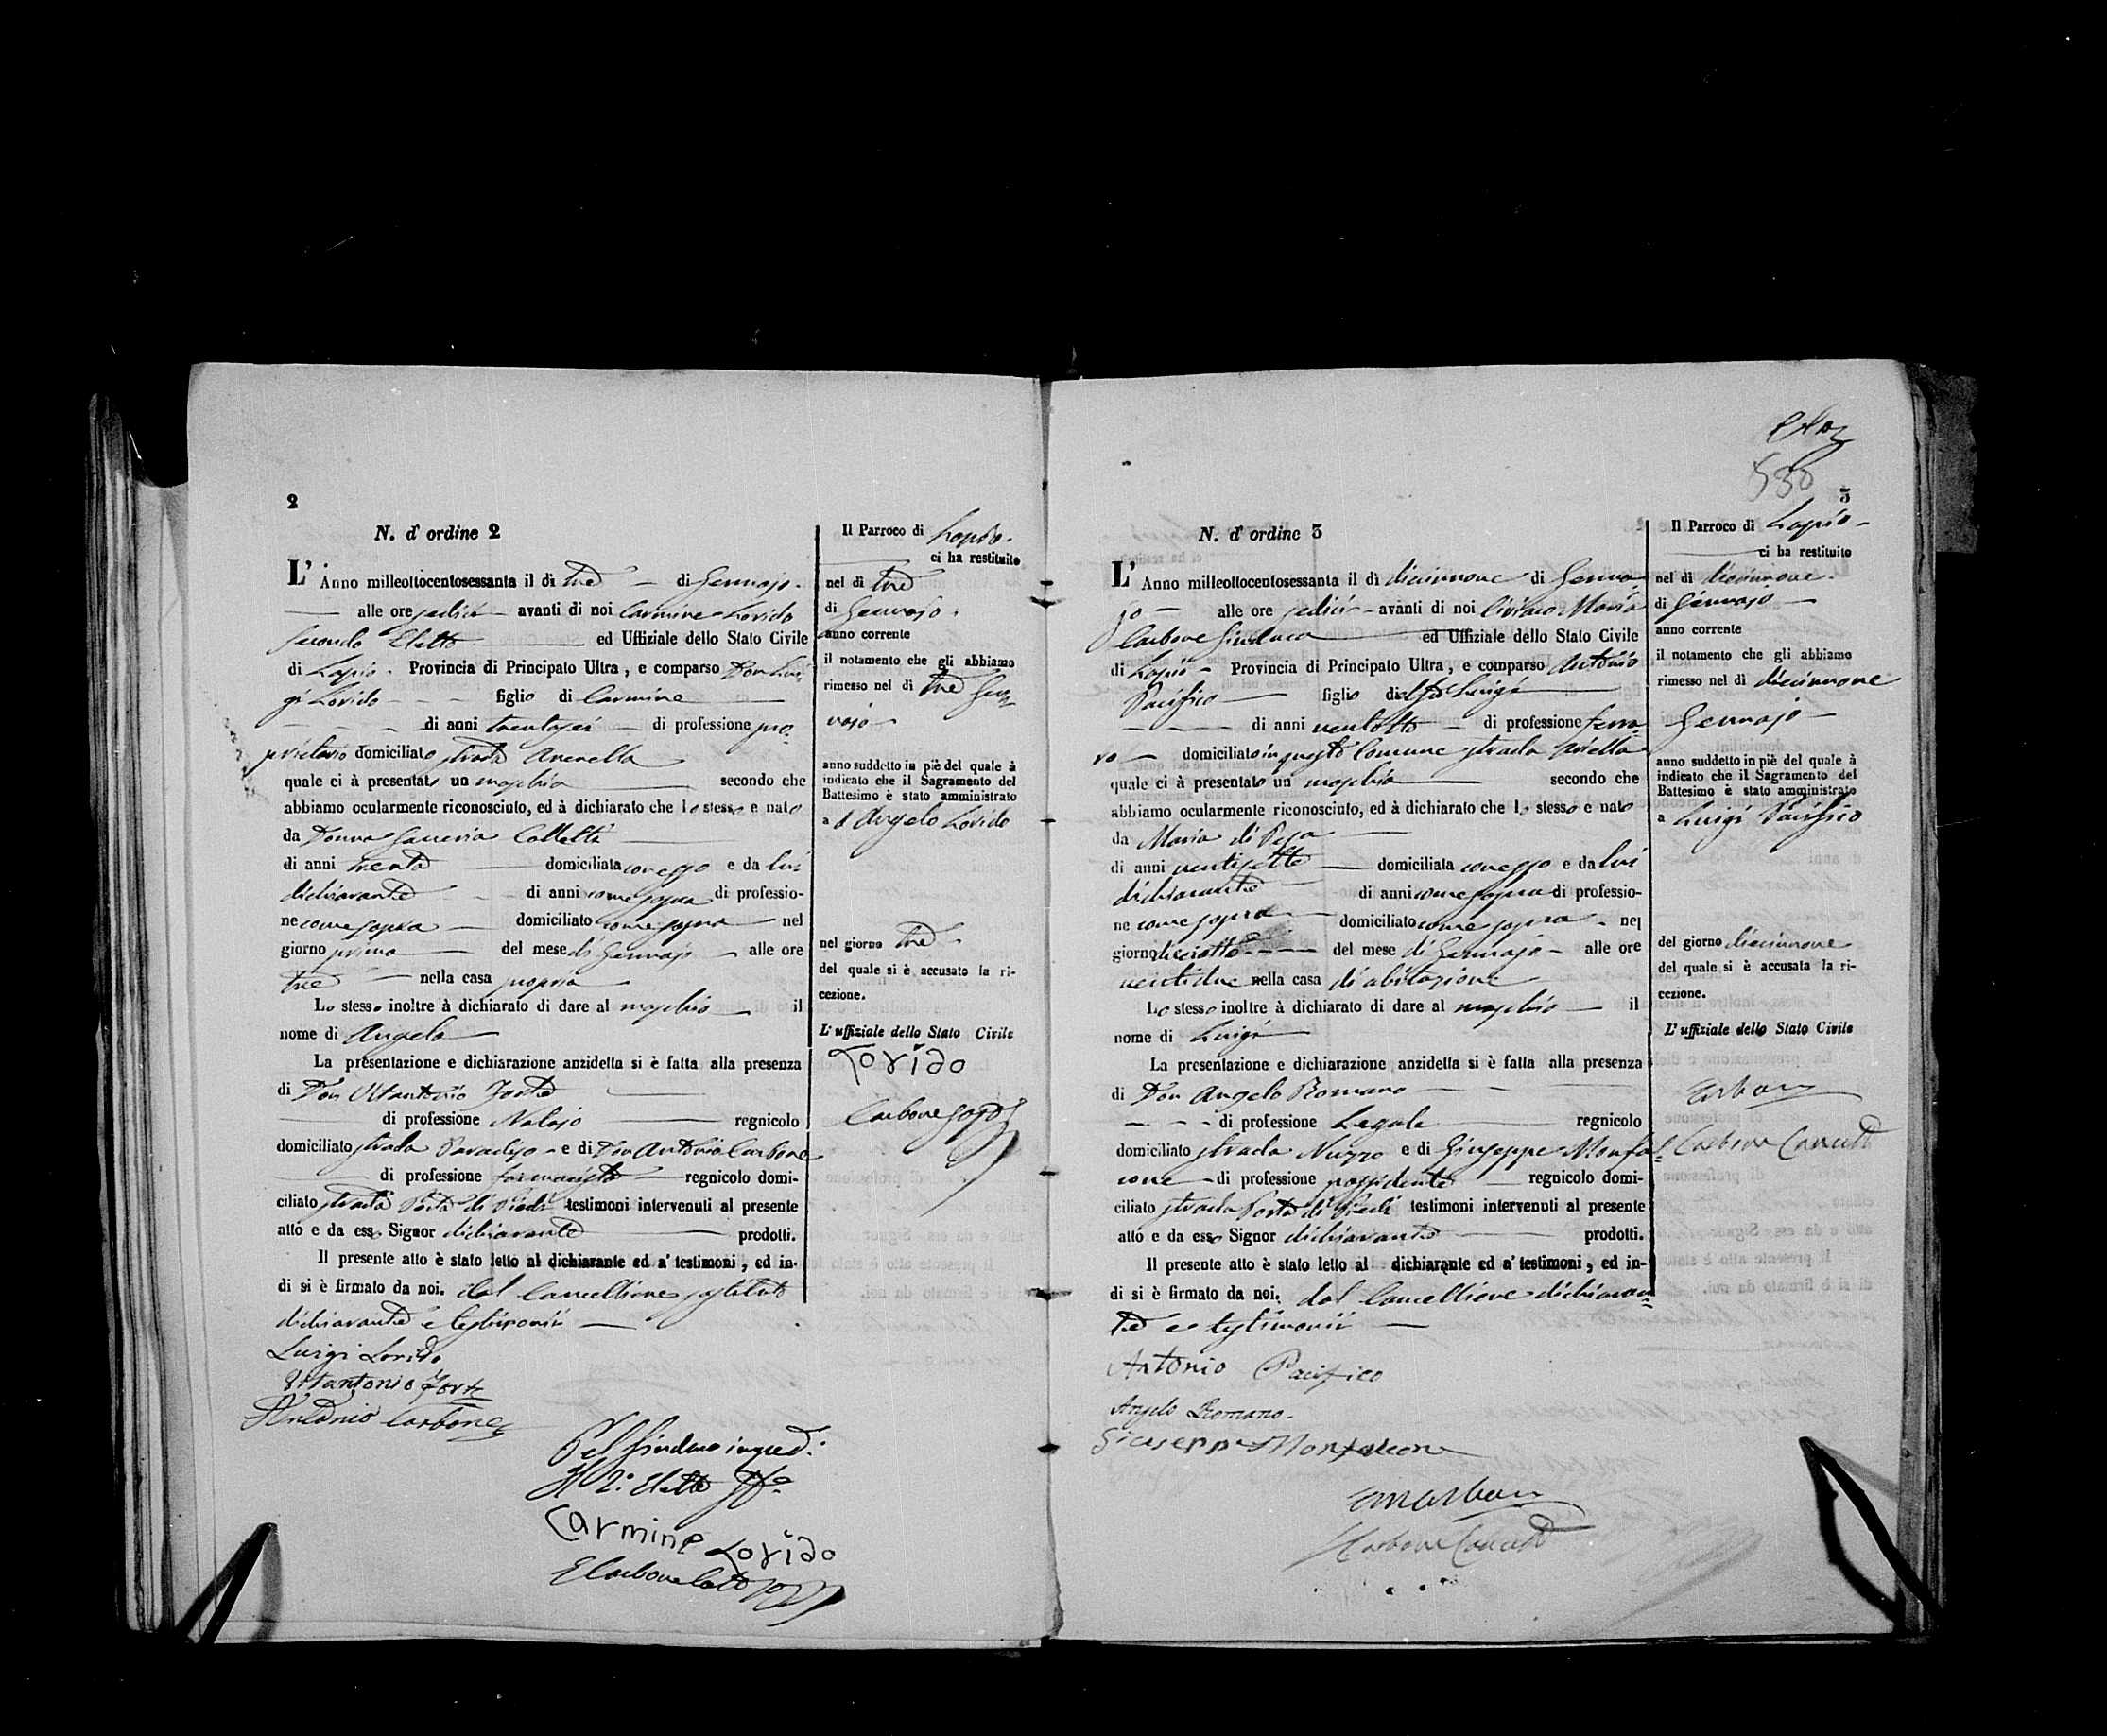 2
N. d' ordine 2
L' Anno milleottocentosessanta il dì tre di Gennajo
alle ore sedici avanti di noi Carmine Lorido
secondo Eletto ed Uffiziale dello Stato Civile
di Lapio Provincia di Principato Ultra, e comparso Don Lui
gi Lorido figlio di Carmine
di anni trentasei di professione pro
prietario domiciliato strada Avenella
quale ci à presentato un maschio secondo che
abbiamo ocularmente riconosciuto, ed à dichiarato che lo stesso e nato
da Donna Saveria Colletti
di anni trenta domiciliata con esso e da lui
dichiarante di anni come sopra di professio-
ne come sopra domiciliato come sopra nel
giorno primo del mese di Gennajo alle ore
tre nella casa propria
Lo stesso inoltre à dichiarato di dare al maschio il
nome di Angelo
La presentazione e dichiarazione anzidetta si è fatta alla presenza
di Don Vitantonio Forte
di professione Notajo regnicolo
domiciliato strada Paradiso e di Don Antonio Carbone
di professione farmacista regnicolo domi-
ciliato strada Porta di Piedi testimoni intervenuti al presente
atto e da esso Signor dichiarante prodotti.
Il presente atto è stato letto al dichiarante ed a' testimoni, ed in-
di si è firmato da noi. dal Cancelliere sostituto
dichiarante e testimonii
Luigi Lorido
Vitantonio Forte
Antonio Carbone
Pel Sindaco imped.
Il 2.° Eletto ff.
Carmine Lorido
Il Parroco di Lapio
ci ha restituito
nel dì tre
di Gennajo
anno corrente
il notamento che gli abbiamo
rimesso nel dì tre Gen
najo
anno suddetto in piè del quale à
indicato che il Sagramento del
Battesimo è stato amministrato
a d Angelo Lorido
nel giorno tre
del quale si è accusato la ri-
cezione.
L' uffiziale dello Stato Civile
Lorido
Carbone
530
3
N. d' ordine 3
L' Anno milleottocentosessanta il dì diciannove di Genna
jo alle ore sedici avanti di noi Ciriaco Maria
Carbone Sindaco ed Uffiziale dello Stato Civile
di Lapio Provincia di Principato Ultra, e comparso Antonio
Pacifico figlio di Luigi
di anni ventotto di professione ferra
ro domiciliato in questo Comune strada Ariella
quale ci à presentato un maschio secondo che
abbiamo ocularmente riconosciuto, ed à dichiarato che lo stesso e nato
da Maria di Pesa
di anni ventisette domiciliata con esso e da lui
dichiarante di anni come sopra di professio-
ne come sopra domiciliato come sopra nel
giorno diciotto del mese di Gennajo alle ore
ventidue nella casa di abitazione
Lo stesso inoltre à dichiarato di dare al maschio il
nome di Luigi
La presentazione e dichiarazione anzidetta si è fatta alla presenza
di Don Angelo Romano
di professione Legale regnicolo
domiciliato strada Nuzzo e di Giuseppe Monfal
cone di professione possidente regnicolo domi-
ciliato strada Porta di Piedi testimoni intervenuti al presente
atto e da esso Signor dichiarante prodotti.
Il presente atto è stato letto al dichiarante ed a' testimoni, ed in-
di si è firmato da noi. dal Cancelliere dichiaran
te e testimonii
Antonio Pacifico
Angelo Romano
Giuseppe Monfalcone
Carbone
Il Parroco di Lapio
ci ha restituito
nel dì diciannove
di Gennajo
anno corrente
il notamento che gli abbiamo
rimesso nel dì diciannove
Gennajo
anno suddetto in piè del quale à
indicato che il Sagramento del
Battesimo è stato amministrato
a Luigi Pacifico
del giorno diciannove
del quale si è accusata la ri-
cezione.
L' uffiziale dello Stato Civile
Carbone